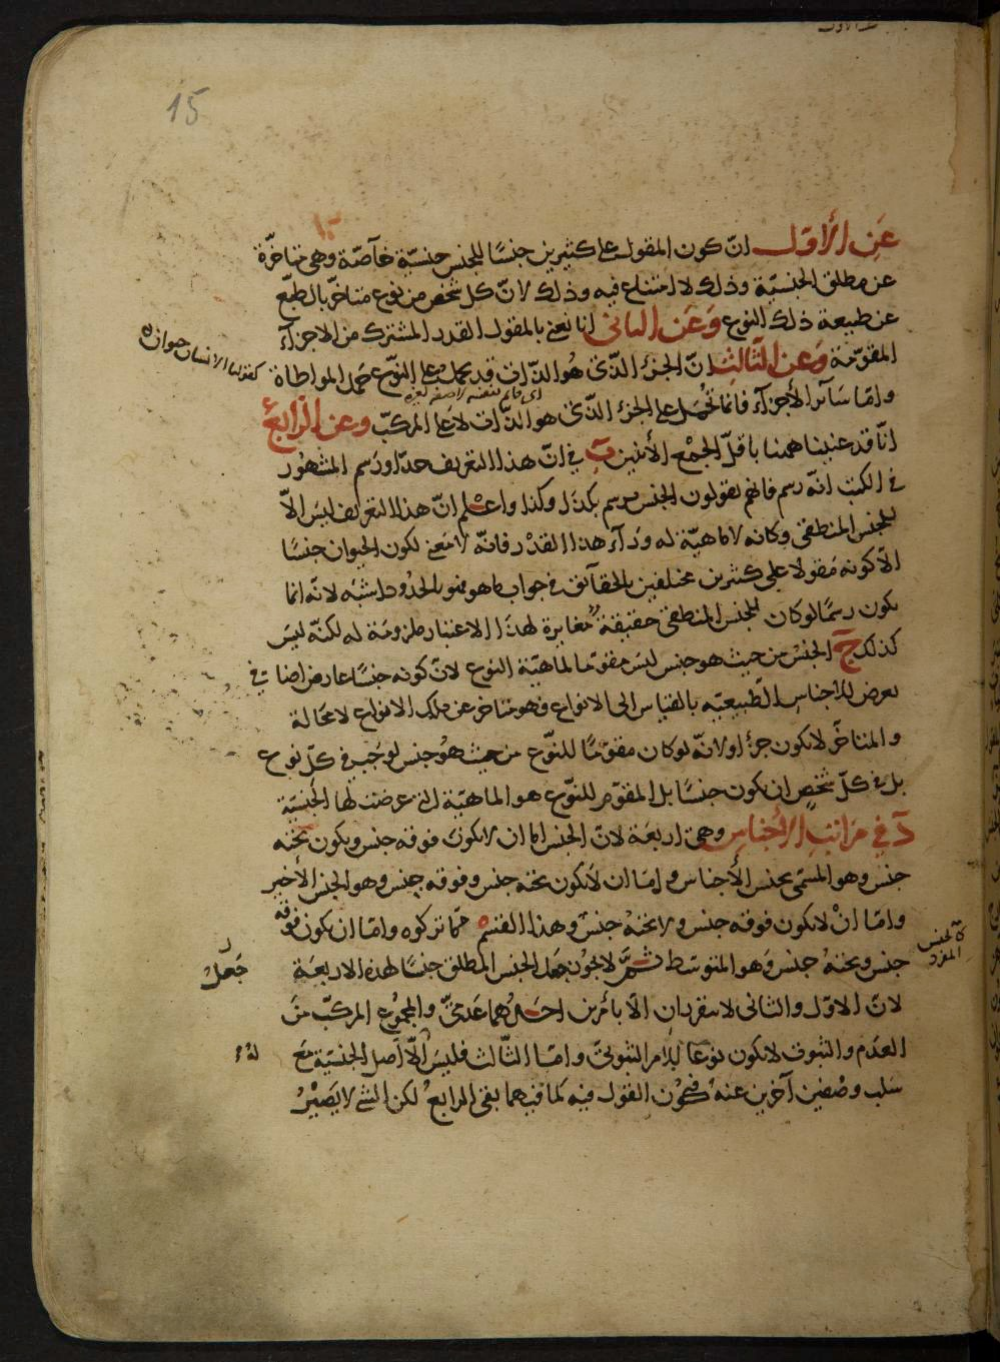 15
عن الأوّل انّ كون المقول على كثيرين جنسًا للجنس جنسيّة خاصّة وهى متاخّرة
عن مطلق الجنسيّة وذلك لا امتناع فيه وذلك لانّ كل شخص من نوع متاخّر بالطبع
عن طبيعة ذلك النوع وعن الثانى انا نعنى بالمقول القدر المشترك من الاجزآء
المقوّمة وعن الثّالث انّ الجزء الّذى هو الذات قد يحمل على النوع حمل المواطاة
كقولنا الانسان حيوان
وامّا سآئر الأجزآء فانّما تحمل على الجزء الّذى هو الذّات لا على المركّب وعن الرّابع
اى قائم بنفسه لا صفة لغيره
انّا قد عنينا ههنا باقلّ الجمْع الأثنين ب في انّ هذا التعريف حدّ او رسم المشهور
في الكتب انّه رسم فانهم يقولون الجنس يرسم بكذا وكذا واعْلم انّ هذا التعريف ليس الّا
للجنس المنطقى وكانه لا ماهيّة له ورآء هذا القدْر فانّه لا معنى لكون الحيوان جنسًا
الّا كونه مقولا على كثيرين مختلفين بالحقآئق فى جواب ما هو فهو بالحدّ اشبه لانّه انّما
يكون رسمًا لو كان للجنس المنطقى حقيقة مغايرة لهذا الاعتبار ملزومة له لكنّه ليس
كذلك ج الجنس من حيث هو جنس ليس مقوّما لماهيّة النوع لانّ كونه جنسًا عارض اضافي
يعرض للاجناس الطّبيعيّه بالقياس الى الانواع فهو متاخر عن تلك الانواع لا محالة
والمتاخّر لا يكون جزءا ولانّه لو كان مقوّمًا للنوع من حيث هو جنس لوجب فى كلّ نوع
بل فى كلّ شخص ان يكون جنسًا بل المقوّم للنوع هو الماهيّة التى عرضت لها الجنسيّة
د في مراتب الأجناس وهى اربعة لانّ الجنس اما ان لا يكون فوقه جنس ويكون تحته
جنس وهو المسمّى بجنس الأجناس وامّا ان لا يكون تحته جنس وفوقه جنس وهو الجنس الأخير
وامّا انْ لا يكون فوقه جنس ولا تحته جنس وهذا القسم ممّا تركوه وامّا ان يكون فوقه
كالجنس المفرد
جنس وتحته جنس وهو المتوسّط ثمّ لا يجوز جعل الجنس المطلق جنسًا لهذه الاربعة
جعل
لانّ الاوّل والثانى لا يتقرران الّا بأمرين احدهما عدمىّ والمجموع المركّب من
العدم والثبوت لا يكون نوعا للامر الثبوتىّ وامّا الثّالث فليس الّا اصل الجنسيّة مع
سلب وصْفين آخرين عنه فيكون القول فيه كما فيهما بقى الرابع لكن الشئ لا يصيْر